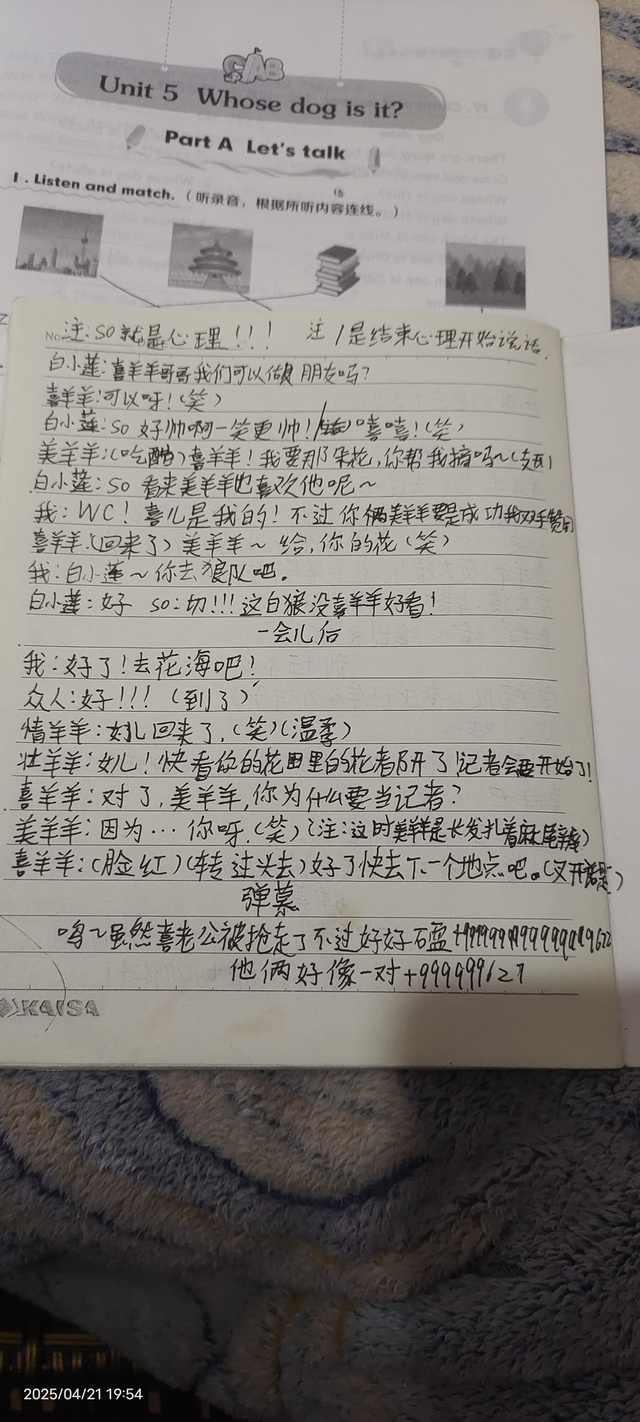 CAB
Unit 5 Whose dog is it?
Part A Let's talk
I. Listen and match.（听录音，根据所听内容连线。）
注:so就是心理!!! 注/是结束心理开始说话.
白小莲:喜羊羊哥哥我们可以做朋友吗?
喜羊羊:可以呀!(笑)
白小莲:so 好帅啊一笑更帅!/嘻嘻!(笑)
美羊羊:(吃醋)喜羊羊!我要那朵花,你帮我摘吗~
白小莲:so 看来美羊羊也喜欢他呢~
我:WC!喜儿是我的!不过你俩美羊羊要是成功我双手赞同
喜羊羊:(回来了)美羊羊~给,你的花(笑)
我:白小莲~你去狼队吧。
白小莲:好 so:切!!!这白狼没喜羊羊好看!
一会儿后
我:好了!去花海吧!
众人:好!!!(到了)
情羊羊:女儿回来了,(笑)(温柔)
壮羊羊:女儿!快看你的花田里的花都开了!记者会要开始了!
喜羊羊:对了,美羊羊,你为什么要当记者?
美羊羊:因为…你呀.(笑)(注:这时美羊羊是长发扎着麻尾辫)
喜羊羊:(脸红)(转过头去)好了快去下一个地点吧。(叉开话题)
弹幕
呜~虽然喜老公被抢走了不过好好石益
他俩好像一对+999999627
KAISA
2025/04/21 19:54